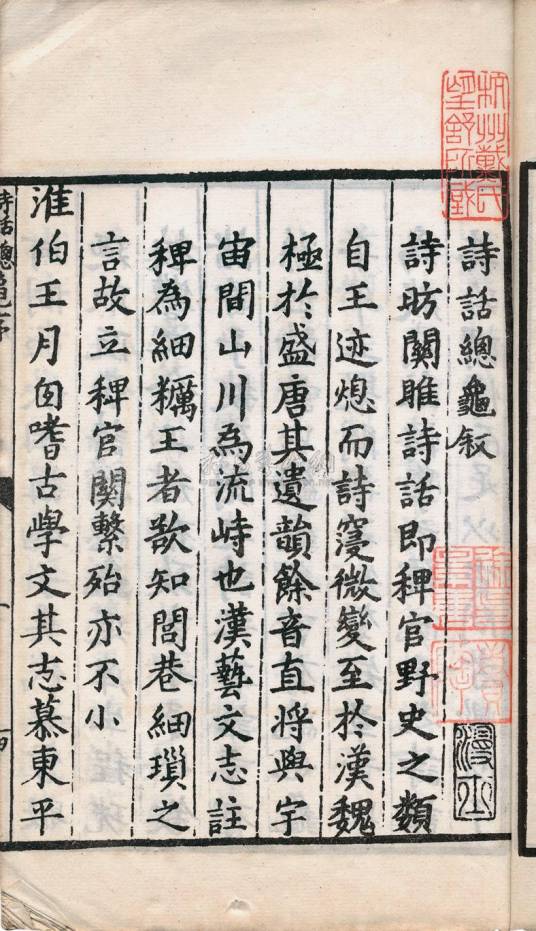 詩話總龜叙
詩昉關雎詩話即稗官野史之類
自王迹熄而詩寖微變至於漢魏
極於盛唐其遺韻餘音直將與宇
宙間山川為流峙也漢藝文志註
稗為細糲王者欲知閭巷細瑣之
言故立稗官関繫殆亦不小
淮伯王月囱嗜古學文其志慕東平
詩話總龜序
杭州戴氏
望舒所藏